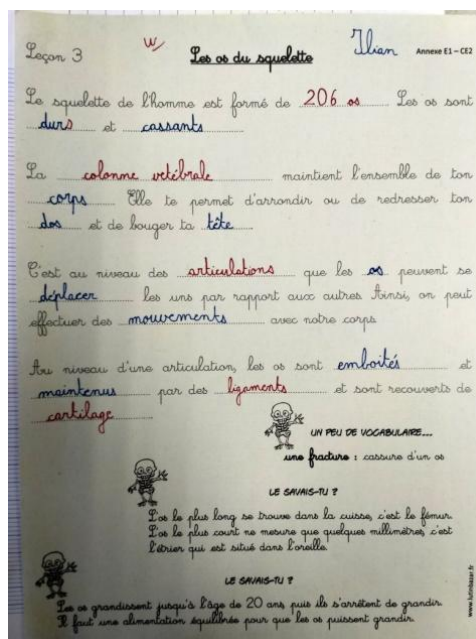 Leçon 3 W Les os du squelette Ilian Annexe E1 – CE2
Le squelette de l'homme est formé de 206 os Les os sont
durs et cassants
La colonne vetébrale maintient l'ensemble de ton
corps Elle te permet d'arrondir ou de redresser ton
dos et de bouger ta tête
C'est au niveau des articulations que les os peuvent se
déplacer les uns par rapport aux autres. Ainsi, on peut
effectuer des mouvements avec notre corps
Au niveau d'une articulation, les os sont emboités et
maintenus par des ligaments et sont recouverts de
cartilage
UN PEU DE VOCABULAIRE...
une fracture : cassure d'un os
LE SAVAIS-TU ?
L'os le plus long se trouve dans la cuisse, c'est le fémur.
L'os le plus court ne mesure que quelques millimètres, c'est
l'étrier qui est situé dans l'oreille.
LE SAVAIS-TU ?
Les os grandissent jusqu'à l'âge de 20 ans, puis ils s'arrêtent de grandir.
Il faut une alimentation équilibrée pour que les os puissent grandir.
www.lutinbazar.fr